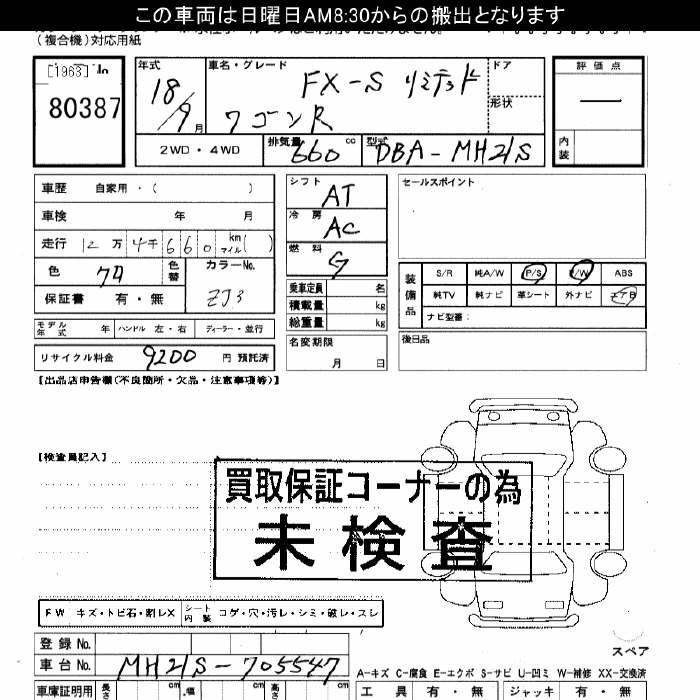 この車両は日曜日AM8:30からの搬出となります
(複合機)対応用紙
[1963] 10
80387
年式
18/9月
車名・グレード
FX-S リミテッド
ワゴンR
ドア
形状
評価点
内装
2WD・4WD
排気量 660 cc
型式 DBA-MH21S
車歴 自家用・( )
車検 年 月
走行 12万4千660 km マイル( )
色
色替
カラーNo. ZJ3
保証書 有・無
モデル年式 年 ハンドル 左・右 ディーラー・並行
リサイクル料金 9200 円 預託済
シフト AT
冷房 AC
燃料 G
乗車定員 名
積載量 kg
総重量 kg
名変期限
月 日
セールスポイント
装備品
S/R 純A/W P/S P/W ABS
純TV 純ナビ 革シート 外ナビ エアB
ナビ型番:
後日品
【出品店申告欄(不良箇所・欠品・注意事項等)】
【検査員記入】
買取保証コーナーの為
未検査
FW キズ・トビ石・割レX シート内装 コゲ・穴・汚レ・シミ・破レ・スレ
登録No.
車台No. MH21S-705547
車庫証明用 長さ cm 幅 cm 高さ cm
スペア
A-キズ C-腐食 E-エクボ S-サビ U-凹ミ W-補修 XX-交換済
工具 有・無 ジャッキ 有・無